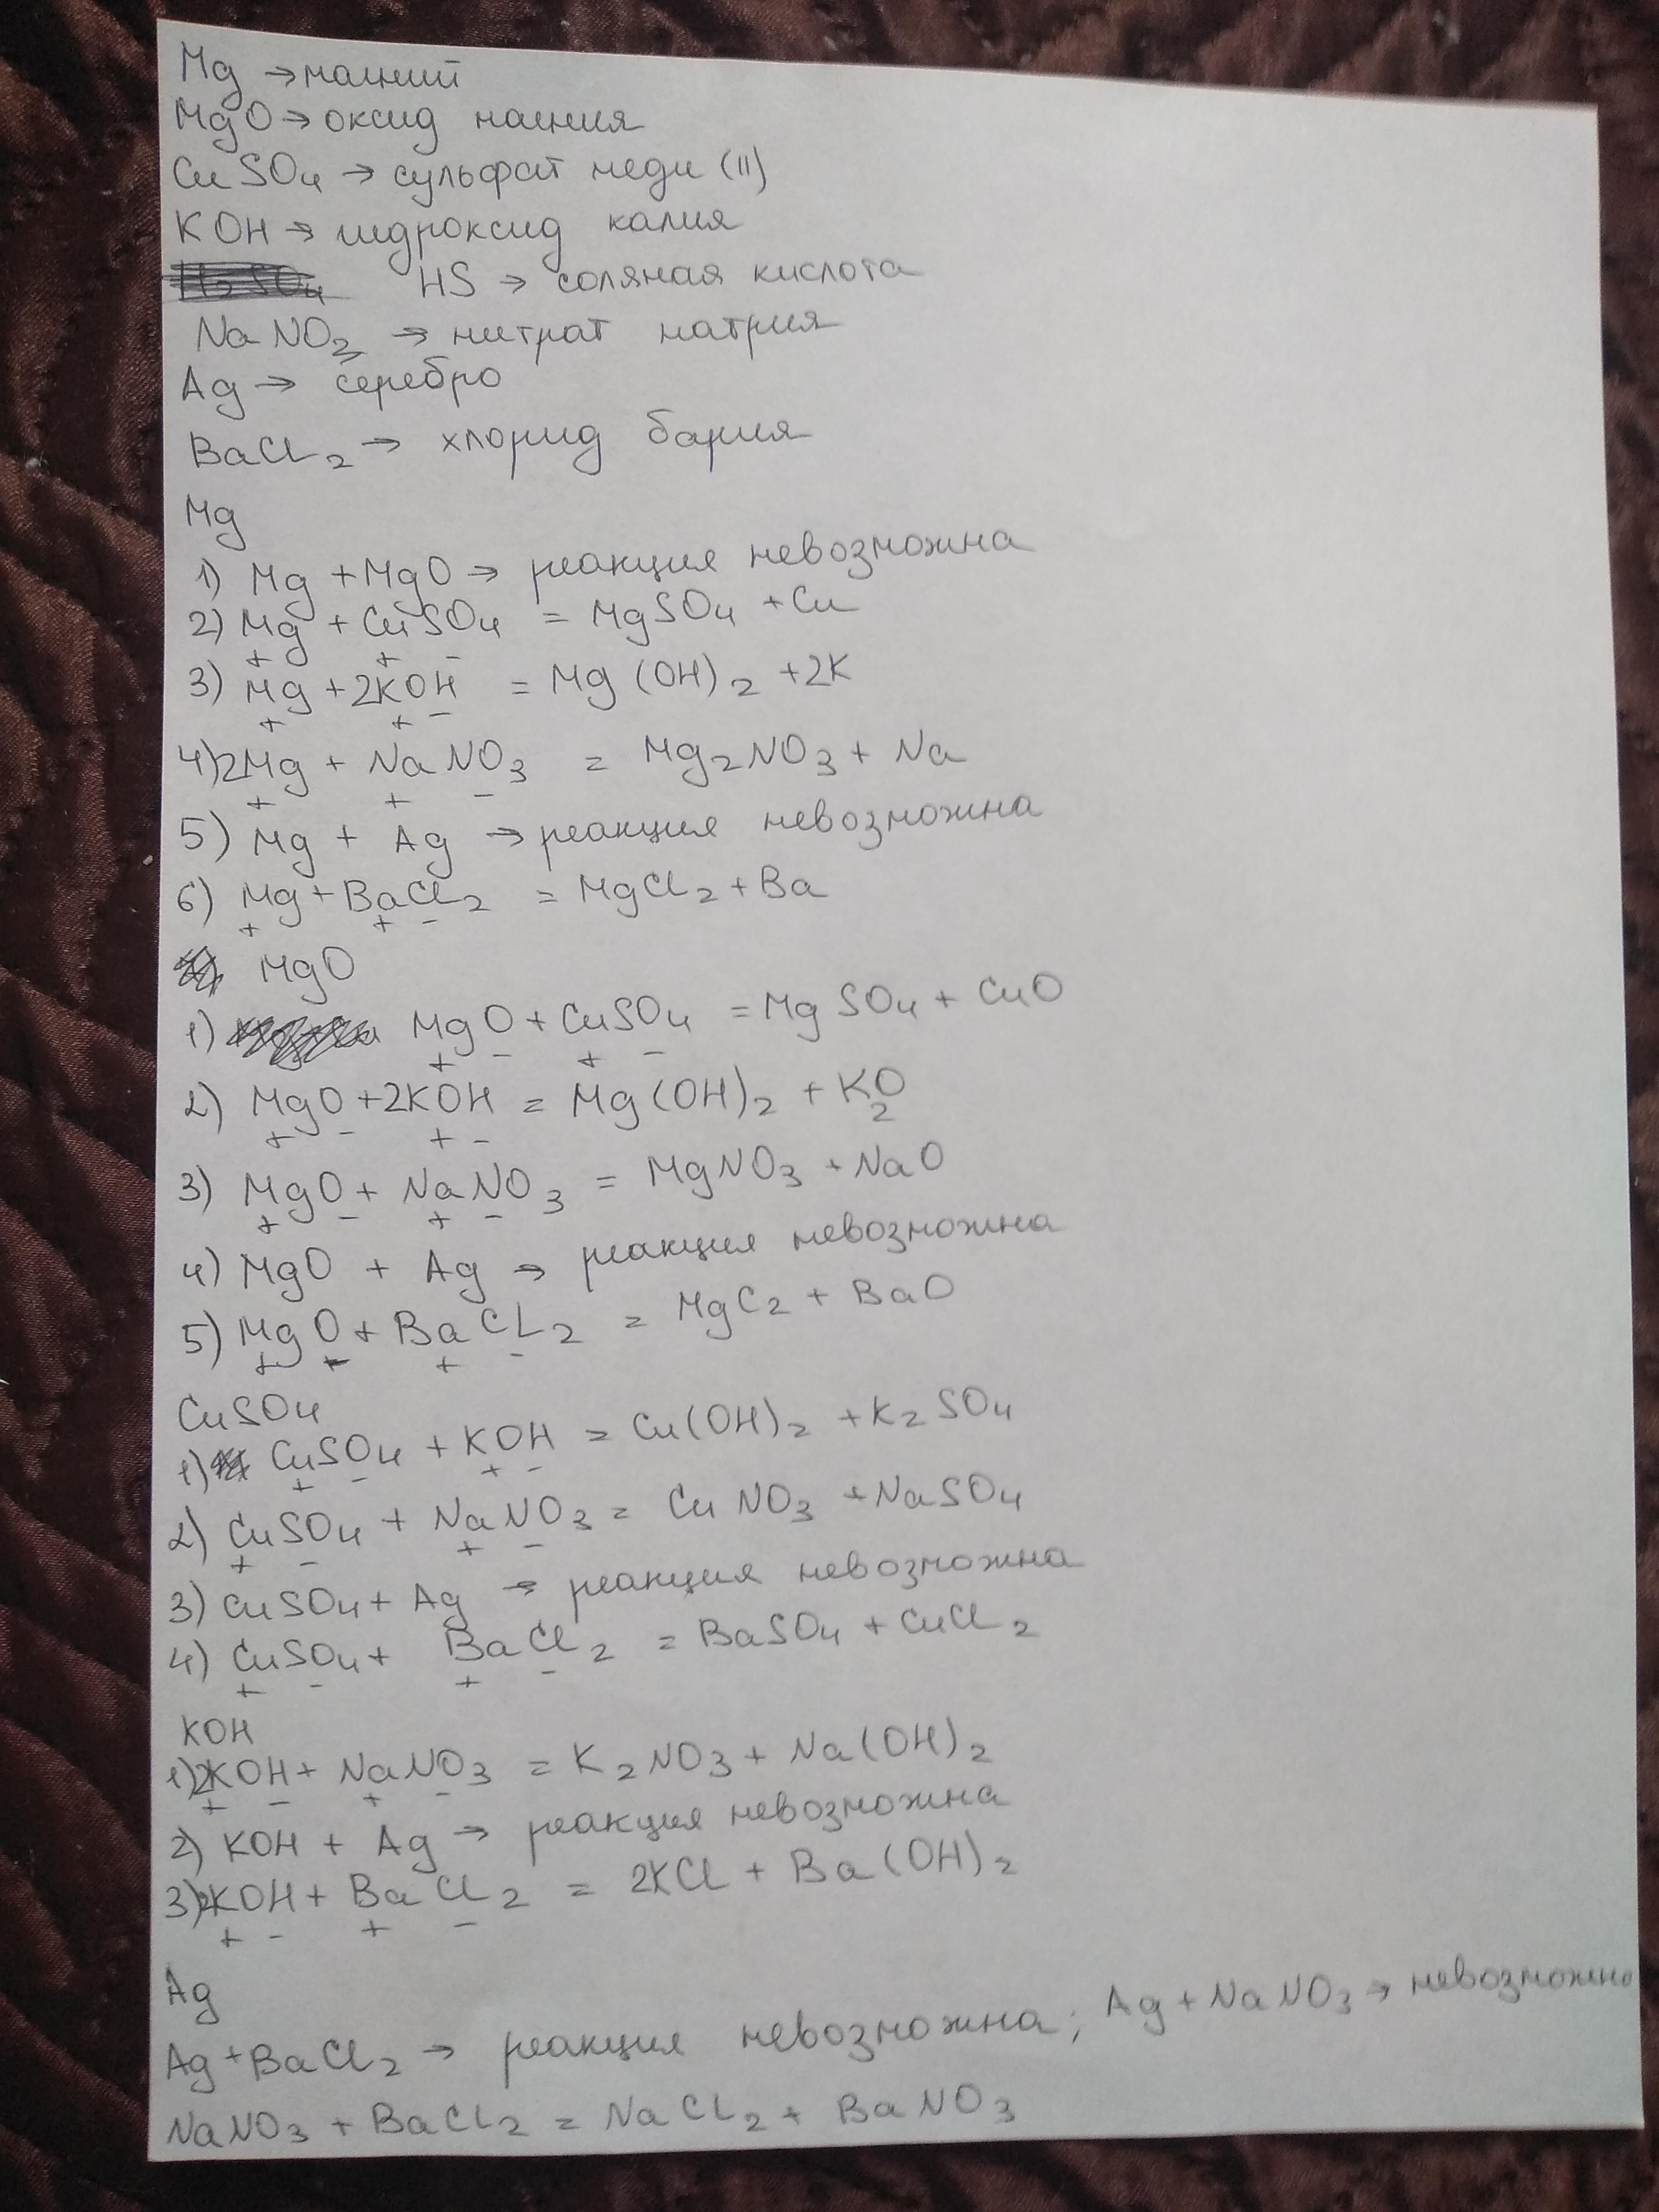 Mg → магний
MgO → оксид магния
CuSO₄ → сульфат меди (II)
KOH → гидроксид калия
H₂SO₄ HS → соляная кислота
NaNO₃ → нитрат натрия
Ag → серебро
BaCl₂ → хлорид бария
Mg
1) Mg + MgO → реакция невозможна
2) Mg + CuSO₄ = MgSO₄ + Cu
+ + -
3) Mg + 2KOH = Mg(OH)₂ + 2K
+ + -
4) 2Mg + NaNO₃ = Mg₂NO₃ + Na
+ + -
5) Mg + Ag → реакция невозможна
6) Mg + BaCl₂ = MgCl₂ + Ba
+ + -
MgO
1) MgO + CuSO₄ = MgSO₄ + CuO
+ - + -
2) MgO + 2KOH = Mg(OH)₂ + K₂O
+ - + -
3) MgO + NaNO₃ = MgNO₃ + NaO
+ - + -
4) MgO + Ag → реакция невозможна
5) MgO + BaCl₂ = MgC₂ + BaO
+ - + -
CuSO₄
1) CuSO₄ + KOH = Cu(OH)₂ + K₂SO₄
+ - + -
2) CuSO₄ + NaNO₃ = CuNO₃ + NaSO₄
+ - + -
3) CuSO₄ + Ag → реакция невозможна
4) CuSO₄ + BaCl₂ = BaSO₄ + CuCl₂
+ - + -
KOH
1) 2KOH + NaNO₃ = K₂NO₃ + Na(OH)₂
+ - + -
2) KOH + Ag → реакция невозможна
3) 2KOH + BaCl₂ = 2KCl + Ba(OH)₂
+ - + -
Ag
Ag + BaCl₂ → реакция невозможна; Ag + NaNO₃ → невозможно
NaNO₃ + BaCl₂ = NaCl₂ + BaNO₃